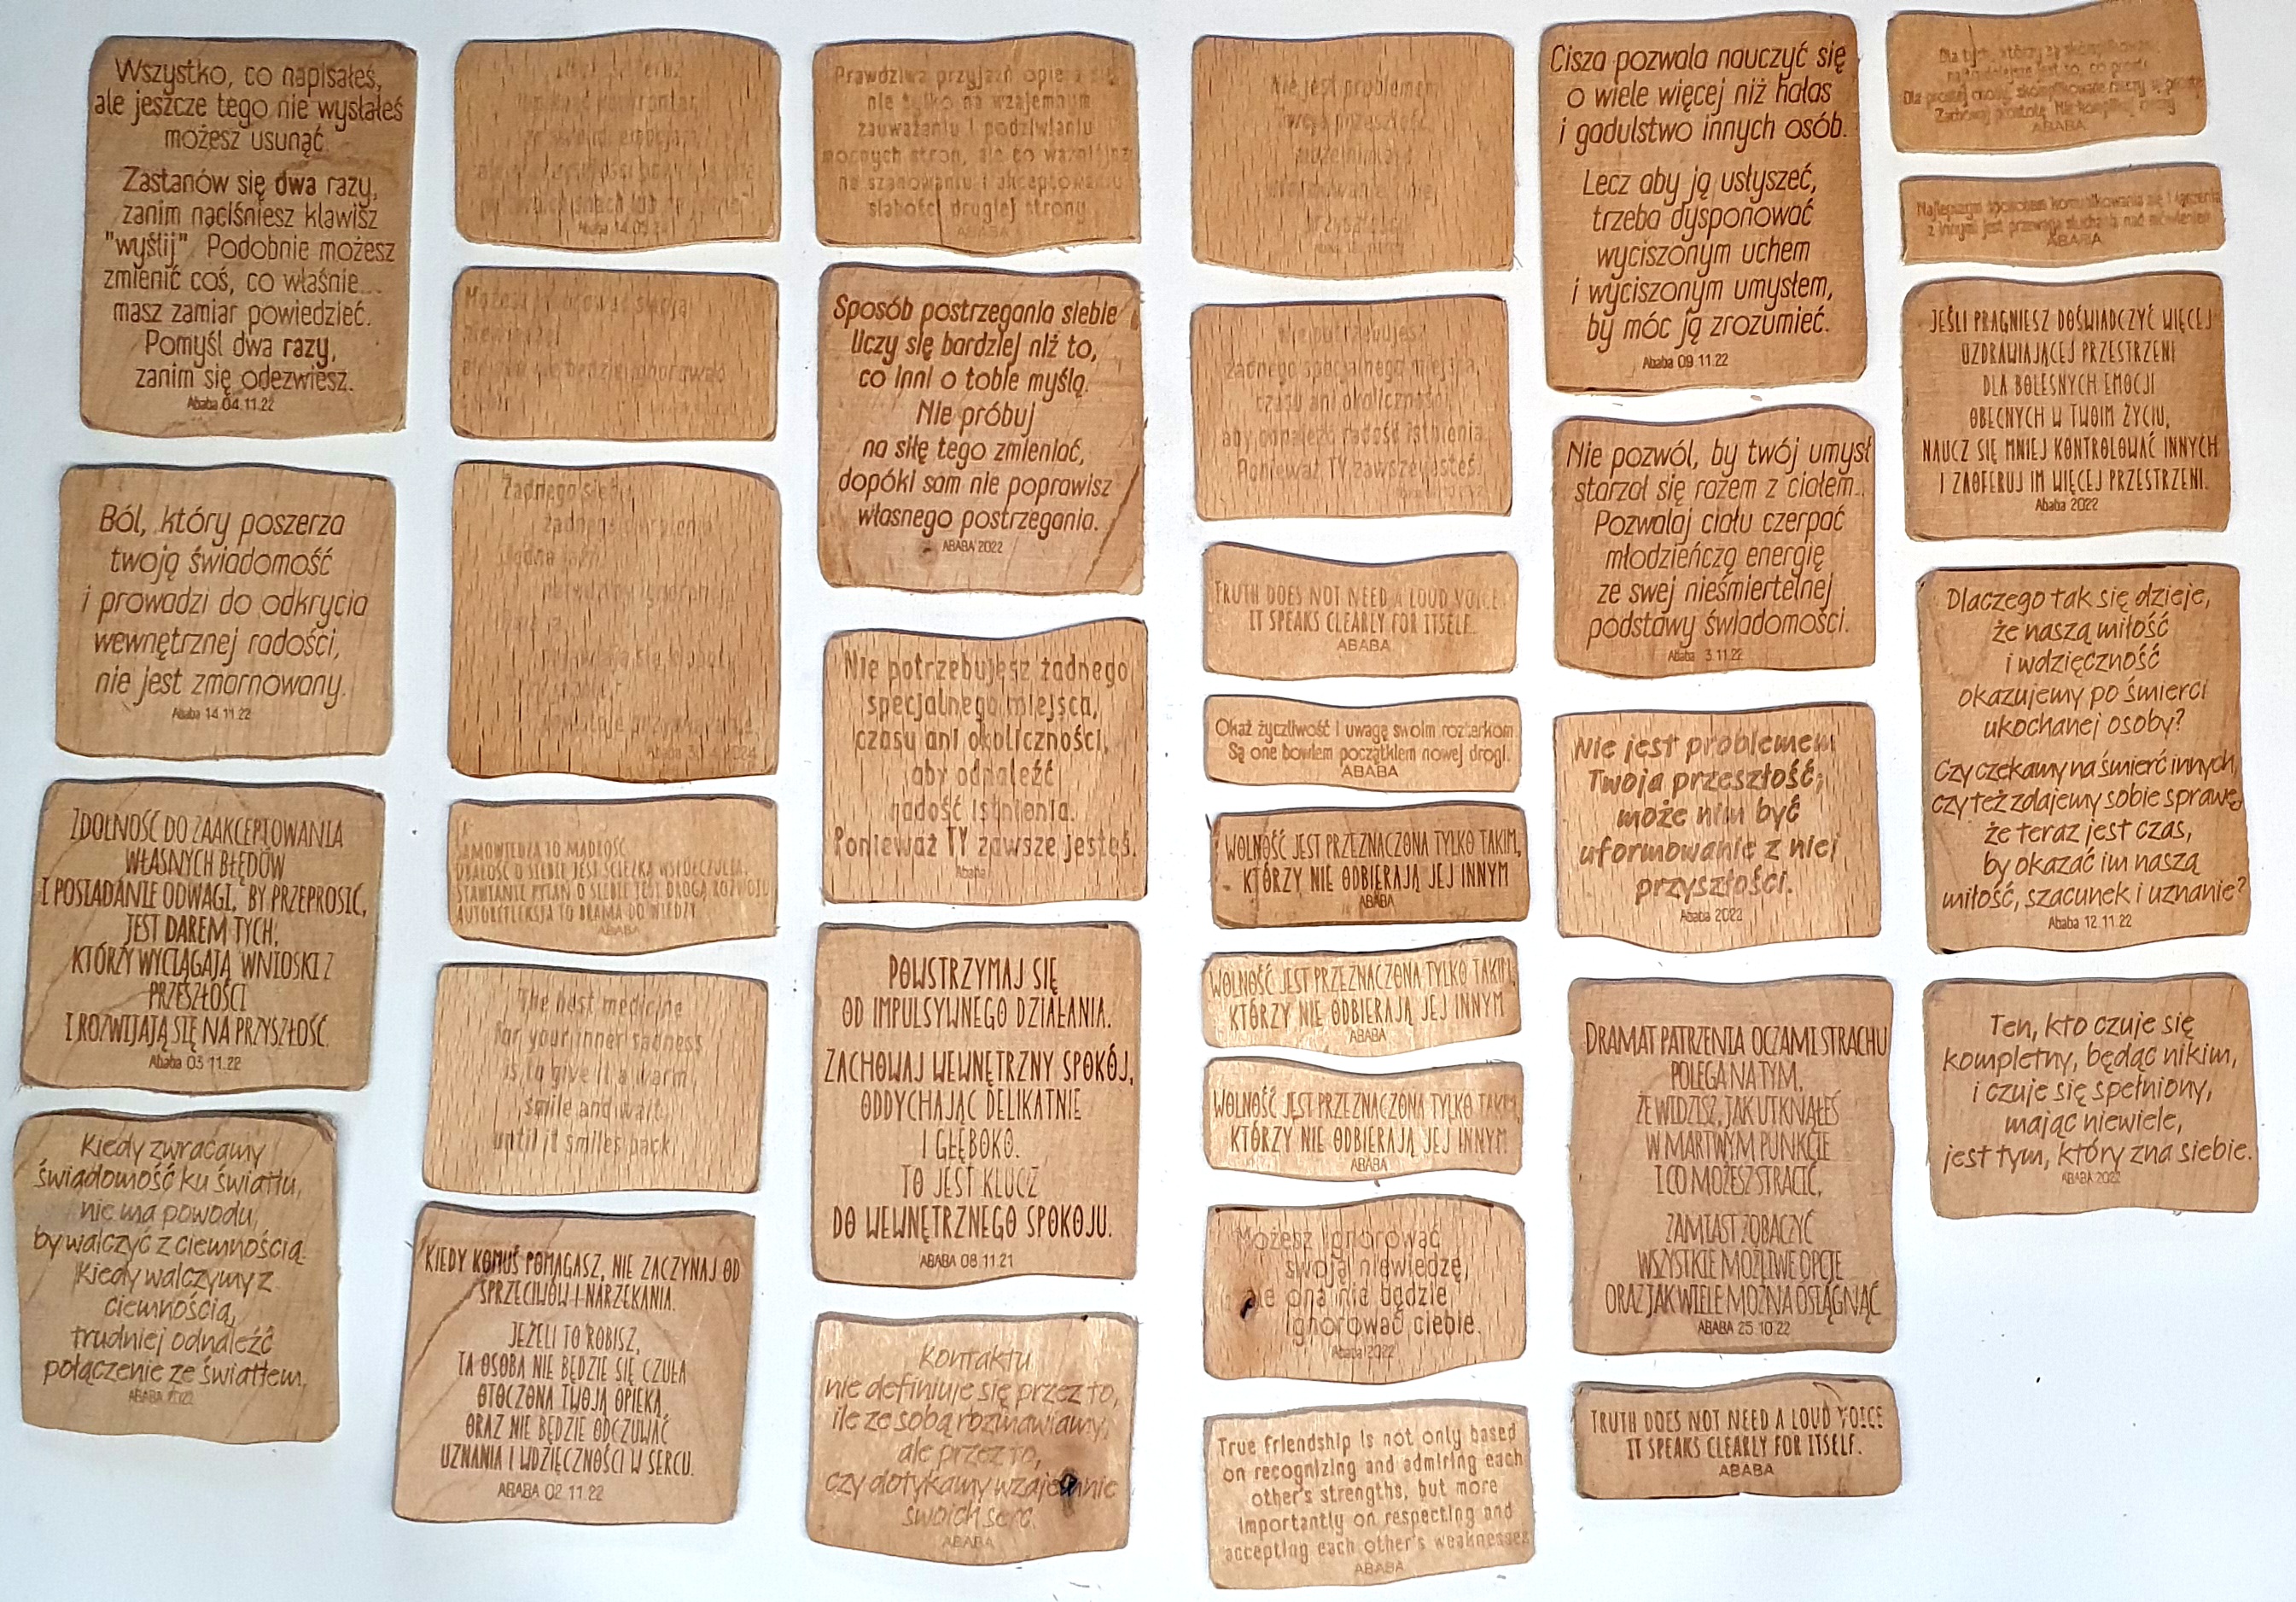 Wszystko, co napisałeś,
ale jeszcze tego nie wysłałeś
możesz usunąć.
Zastanów się dwa razy,
zanim naciśniesz klawisz
"wyślij". Podobnie możesz
zmienić coś, co właśnie...
masz zamiar powiedzieć.
Pomyśl dwa razy,
zanim się odezwiesz.
Ababa 04.11.22
Ból, który poszerza
twoją świadomość
i prowadzi do odkrycia
wewnętrznej radości,
nie jest zmarnowany.
Ababa 14.11.22
ZDOLNOŚĆ DO ZAAKCEPTOWANIA
WŁASNYCH BŁĘDÓW
I POSIADANIE ODWAGI, BY PRZEPROSIĆ,
JEST DAREM TYCH,
KTÓRZY WYCIĄGAJĄ WNIOSKI Z
PRZESZŁOŚCI
I ROZWIJAJĄ SIĘ NA PRZYSZŁOŚĆ.
Ababa 03.11.22
Kiedy zwracamy
świadomość ku światłu,
nie ma powodu,
by walczyć z ciemnością.
Kiedy walczymy z
ciemnością,
trudniej odnaleźć
połączenie ze światłem.
ABABA 2022
Żadnego
SAMOWIEDZA TO MĄDROŚĆ
DBAŁOŚĆ O SIEBIE JEST ŚCIEŻKĄ WSPÓŁCZUCIA.
STAWIANIE PYTAŃ O SIEBIE JEST DROGĄ ROZWOJU
AUTOREFLEKSJA TO BRAMA DO WIEDZY
ABABA
The best medicine
for your inner sadness
is to give it a warm
smile and wait
until it smiles back.
KIEDY KOMUŚ POMAGASZ, NIE ZACZYNAJ OD
SPRZECIWÓW I NARZEKANIA.
JEŻELI TO ROBISZ,
TA OSOBA NIE BĘDZIE SIĘ CZUŁA
OTOCZONA TWOJĄ OPIEKĄ
ORAZ NIE BĘDZIE ODCZUWAĆ
UZNANIA I WDZIĘCZNOŚCI W SERCU.
ABABA 02.11.22
Prawdziwa przyjaźń opiera się
nie tylko na wzajemnym
zauważaniu i podziwianiu
mocnych stron, ale co ważniejsze
na szanowaniu i akceptowaniu
słabości drugiej strony.
ABABA
Sposób postrzegania siebie
liczy się bardziej niż to,
co inni o tobie myślą.
Nie próbuj
na siłę tego zmieniać,
dopóki sam nie poprawisz
własnego postrzegania.
ABABA 2022
Nie potrzebujesz żadnego
specjalnego miejsca,
czasu ani okoliczności,
aby odnaleźć
radość istnienia.
Ponieważ TY zawsze jesteś.
Ababa
POWSTRZYMAJ SIĘ
OD IMPULSYWNEGO DZIAŁANIA.
ZACHOWAJ WEWNĘTRZNY SPOKÓJ,
ODDYCHAJĄC DELIKATNIE
I GŁĘBOKO.
TO JEST KLUCZ
DO WEWNĘTRZNEGO SPOKOJU.
ABABA 08.11.21
Kontaktu
nie definiuje się przez to,
ile ze sobą rozmawiamy,
ale przez to,
czy dotykamy wzajemnie
swoich serc.
ABABA
Nie jest problemem
Twoja przeszłość,
Nie potrzebujesz
żadnego specjalnego miejsca,
czasu ani okoliczności,
aby odnaleźć radość istnienia.
Ponieważ TY zawsze jesteś.
TRUTH DOES NOT NEED A LOUD VOICE
IT SPEAKS CLEARLY FOR ITSELF.
ABABA
Okaż życzliwość i uwagę swoim rozterkom.
Są one bowiem początkiem nowej drogi.
ABABA
WOLNOŚĆ JEST PRZEZNACZONA TYLKO TAKIM,
KTÓRZY NIE ODBIERAJĄ JEJ INNYM
ABABA
WOLNOŚĆ JEST PRZEZNACZONA TYLKO TAKIM,
KTÓRZY NIE ODBIERAJĄ JEJ INNYM
ABABA
WOLNOŚĆ JEST PRZEZNACZONA TYLKO TAKIM,
KTÓRZY NIE ODBIERAJĄ JEJ INNYM
ABABA
Możesz ignorować
swoją niewiedzę,
ale ona nie będzie
ignorować ciebie.
Ababa 2022
True friendship is not only based
on recognizing and admiring each
other's strengths, but more
importantly on respecting and
accepting each other's weaknesses
ABABA
Cisza pozwala nauczyć się
o wiele więcej niż hałas
i gadulstwo innych osób.
Lecz aby ją usłyszeć,
trzeba dysponować
wyciszonym uchem
i wyciszonym umysłem,
by móc ją zrozumieć.
Ababa 09.11.22
Nie pozwól, by twój umysł
starzał się razem z ciałem...
Pozwalaj ciału czerpać
młodzieńczą energię
ze swej nieśmiertelnej
podstawy świadomości.
Ababa 3.11.22
Nie jest problemem
Twoja przeszłość;
może nim być
uformowanie z niej
przyszłości.
Ababa 2022
DRAMAT PATRZENIA OCZAMI STRACHU
POLEGA NA TYM,
ŻE WIDZISZ, JAK UTKNĄŁEŚ
W MARTWYM PUNKCIE
I CO MOŻESZ STRACIĆ,
ZAMIAST ZOBACZYĆ
WSZYSTKIE MOŻLIWE OPCJE
ORAZ JAK WIELE MOŻNA OSIĄGNĄĆ.
ABABA 25.10.22
TRUTH DOES NOT NEED A LOUD VOICE
IT SPEAKS CLEARLY FOR ITSELF.
ABABA
Dla tych, którzy są skomplikowani,
najtrudniejsze jest to, co proste.
Dla prostej osoby, skomplikowane rzeczy są proste
Zachowaj prostotę. Nie komplikuj rzeczy.
ABABA
Najlepszym sposobem komunikowania się i łączenia
z innymi jest przewaga słuchania nad mówieniem
ABABA
JEŚLI PRAGNIESZ DOŚWIADCZYĆ WIĘCEJ
UZDRAWIAJĄCEJ PRZESTRZENI
DLA BOLESNYCH EMOCJI
OBECNYCH W TWOIM ŻYCIU,
NAUCZ SIĘ MNIEJ KONTROLOWAĆ INNYCH
I ZAOFERUJ IM WIĘCEJ PRZESTRZENI.
Ababa 2022
Dlaczego tak się dzieje,
że naszą miłość
i wdzięczność
okazujemy po śmierci
ukochanej osoby?
Czy czekamy na śmierć innych,
czy też zdajemy sobie sprawę,
że teraz jest czas,
by okazać im naszą
miłość, szacunek i uznanie?
Ababa 12.11.22
Ten, kto czuje się
kompletny, będąc nikim,
i czuje się spełniony,
mając niewiele,
jest tym, który zna siebie.
ABABA 2022